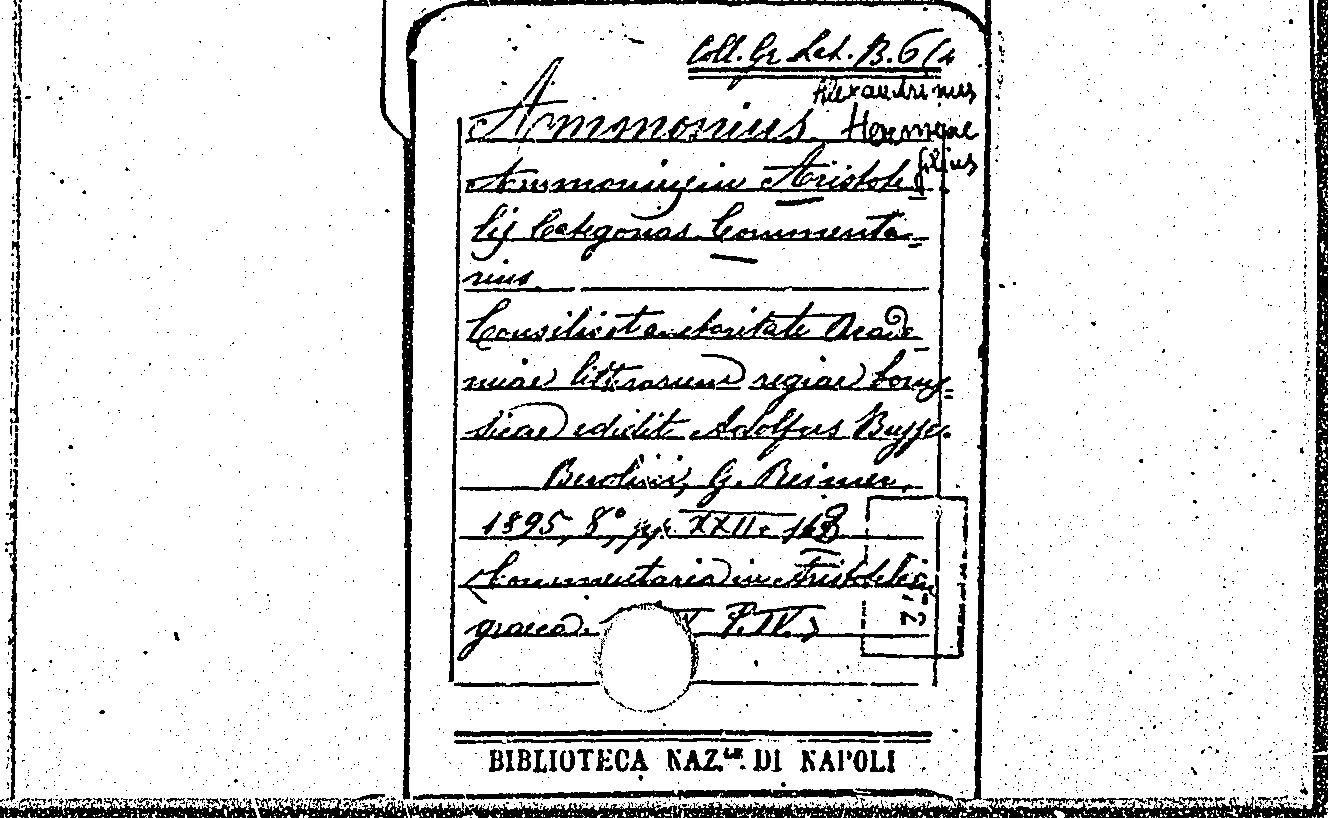 Coll. Gr. Lat. B. 6/4
Alexandrinus
Ammonius Hermeae
filius
Ammonius in Aristote=
lis Categorias Commenta=
rius
Consilio et auctoritate Acade=
miae litterarum regiae borus=
sicae edidit Adolfus Busse.
Berolini, G. Reimer,
1895, 8°, pp. XXII-
(Commentaria in Aristotelem
graeca. P. IV.)
BIBLIOTECA NAZ.LE DI NAPOLI